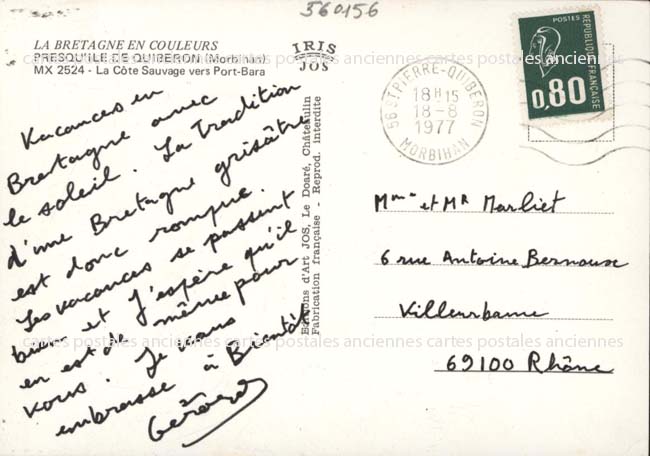 560156
LA BRETAGNE EN COULEURS
PRESQU'ILE DE QUIBERON (Morbihan)
MX 2524 - La Côte Sauvage vers Port-Bara
IRIS
JOS
POSTES
RÉPUBLIQUE FRANÇAISE
0,80
56 ST PIERRE-QUIBERON
18H15
18-8
1977
MORBIHAN
cartes postales anciennes cartes postales anciennes cartes postales anciennes
Vacances en
Bretagne avec
le soleil. La Tradition
d'une Bretagne grisâtre
est donc rompue.
Les vacances se passent
bien et j'espère qu'il
en est de même pour
vous. Je vous
embrasse à Bientôt
Gérard
Editions d'Art JOS, Le Doaré, Châteaulin
Fabrication française - Reprod. interdite
Mme et MR Marliet
6 rue Antoine Bernoux
Villeurbanne
69100 Rhône
cartes postales anciennes cartes postales anciennes cartes postales anciennes